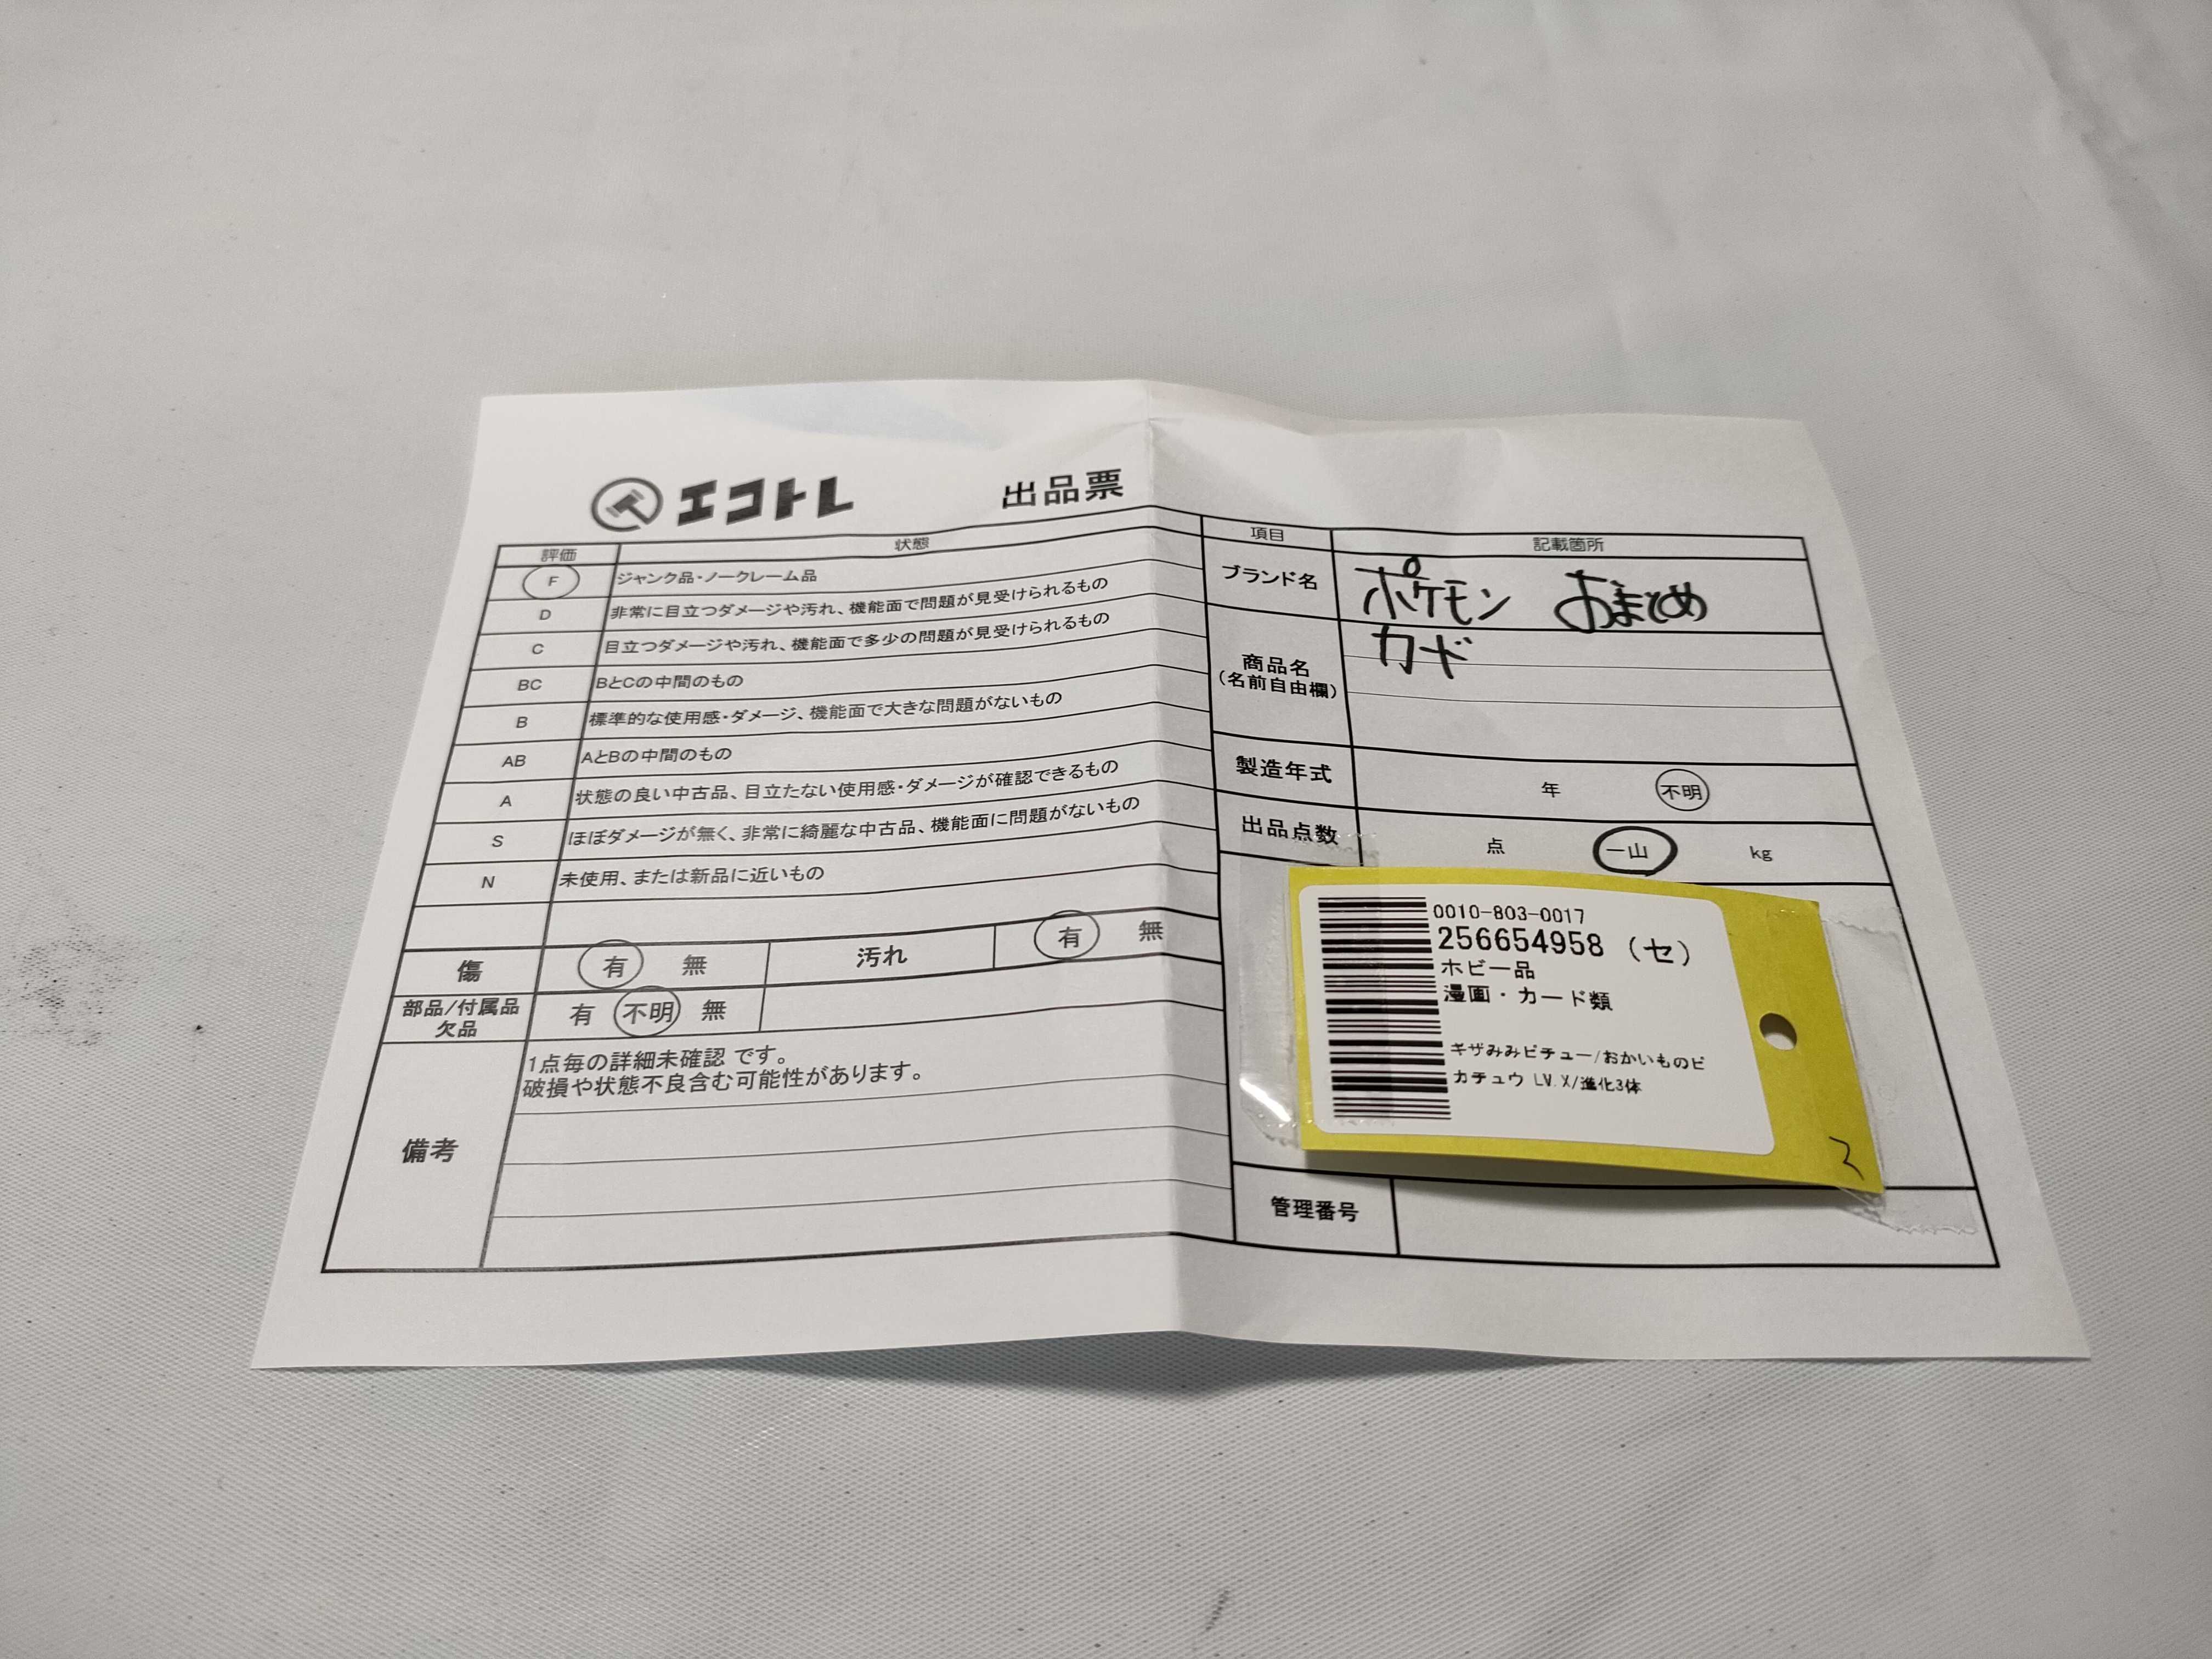 エコトレ 出品票
評価 状態
F ジャンク品・ノークレーム品
D 非常に目立つダメージや汚れ、機能面で問題が見受けられるもの
C 目立つダメージや汚れ、機能面で多少の問題が見受けられるもの
BC BとCの中間のもの
B 標準的な使用感・ダメージ、機能面で大きな問題がないもの
AB AとBの中間のもの
A 状態の良い中古品、目立たない使用感・ダメージが確認できるもの
S ほぼダメージが無く、非常に綺麗な中古品、機能面に問題がないもの
N 未使用、または新品に近いもの
傷 有 無 汚れ 有 無
部品/付属品 欠品 有 不明 無
備考
1点毎の詳細未確認 です。
破損や状態不良含む可能性があります。
項目 記載箇所
ブランド名 ポケモン おまとめ
商品名 カード
(名前自由欄)
製造年式 年 不明
出品点数 点 一山 kg
0010-803-0017
256654958 (セ)
ホビー品
漫画・カード類
ギザみみピチュー/おかいものピ
カチュウ LV.X/進化3体
管理番号